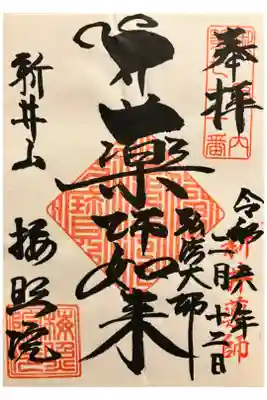 奉拝
令和六年二月十二日
新井薬師
薬師如来
弘法大師
新井山
梅照院